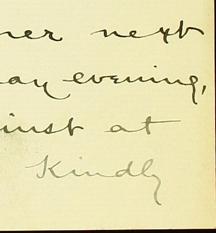 ner next
ay evening,
inst at
Kindly